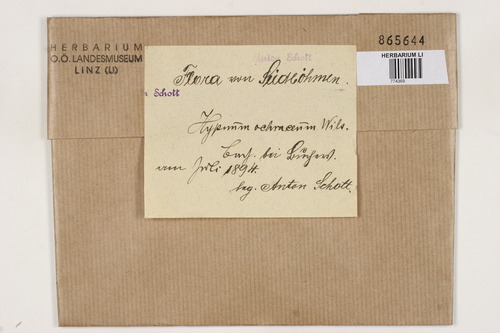 HERBARIUM
O.Ö. LANDESMUSEUM
LINZ (LI)
865644
HERBARIUM LI
Anton Schott
Schott
Flora von Südböhmen.
Hypnum ochraceum Wils.
Bach bei
am Juli 1894.
leg. Anton Schott.